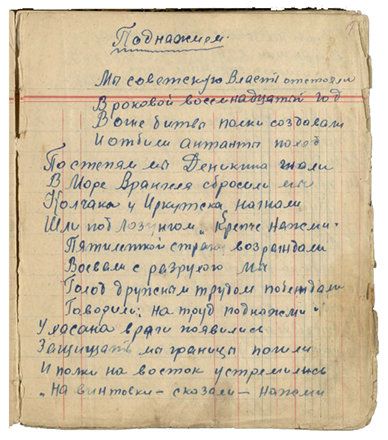 Поднажмем.
Мы советскую власть отстояли
В роковой восемнадцатый год
В огне битвы полки создавали
И отбили антанты поход
По степям мы Деникина гнали
В Море Врангеля сбросили мы
Колчака у Иркутска нагнали
Шли под лозунгом „Крепче Нажми"
Пятилеткой страну возраждали
Воевали с разрухою мы
Голод дружным трудом побеждали
Говорили: на труд поднажми"
У Хасана враги появились
Защищать мы границы пошли
И полки на восток устремились
„На винтовки – сказали – Нажми